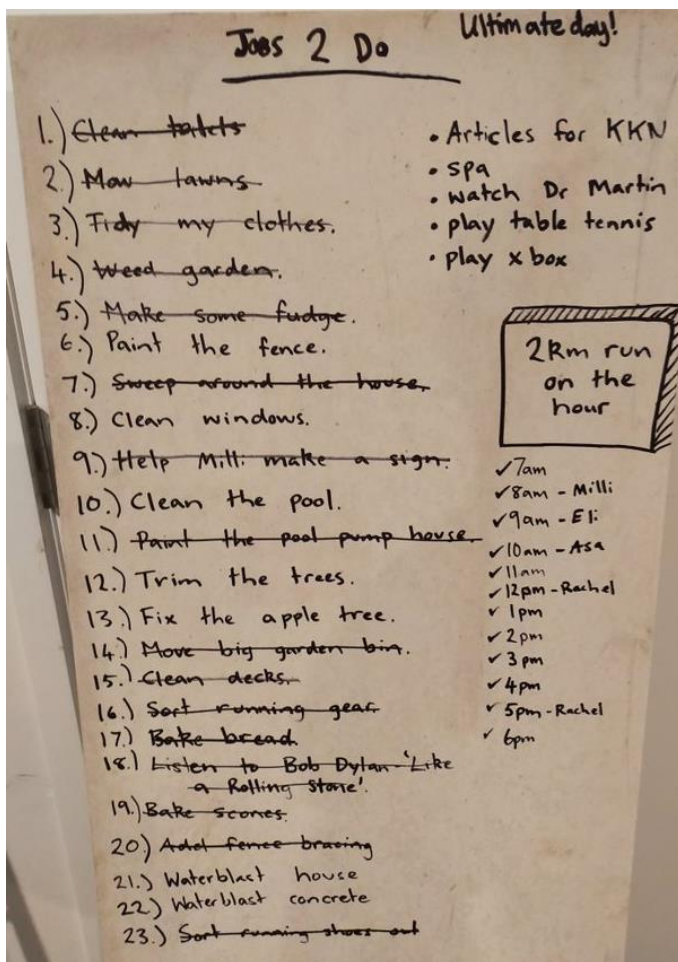 Jobs 2 Do
Ultimate day!
1.) Clean toilets
2.) Mow lawns
3.) Tidy my clothes.
4.) Weed garden.
5.) Make some fudge.
6.) Paint the fence.
7.) Sweep around the house.
8.) Clean windows.
9.) Help Milli make a sign.
10.) Clean the pool.
11.) Paint the pool pump house.
12.) Trim the trees.
13.) Fix the apple tree.
14.) Move big garden bin.
15.) Clean decks.
16.) Sort running gear
17.) Bake bread
18.) Listen to Bob Dylan-'Like
a Rolling Stone'.
19.) Bake scones.
20.) Add fence bracing
21.) Waterblast house
22.) Waterblast concrete
23.) Sort running shoes out
• Articles for KKN
• spa
• watch Dr Martin
• play table tennis
• play x box
2km run
on the
hour
✓7am
✓8am - Milli
✓9am - Eli
✓10am - Asa
✓11am
✓12pm - Rachel
✓1pm
✓2pm
✓3pm
✓4pm
✓5pm - Rachel
✓6pm